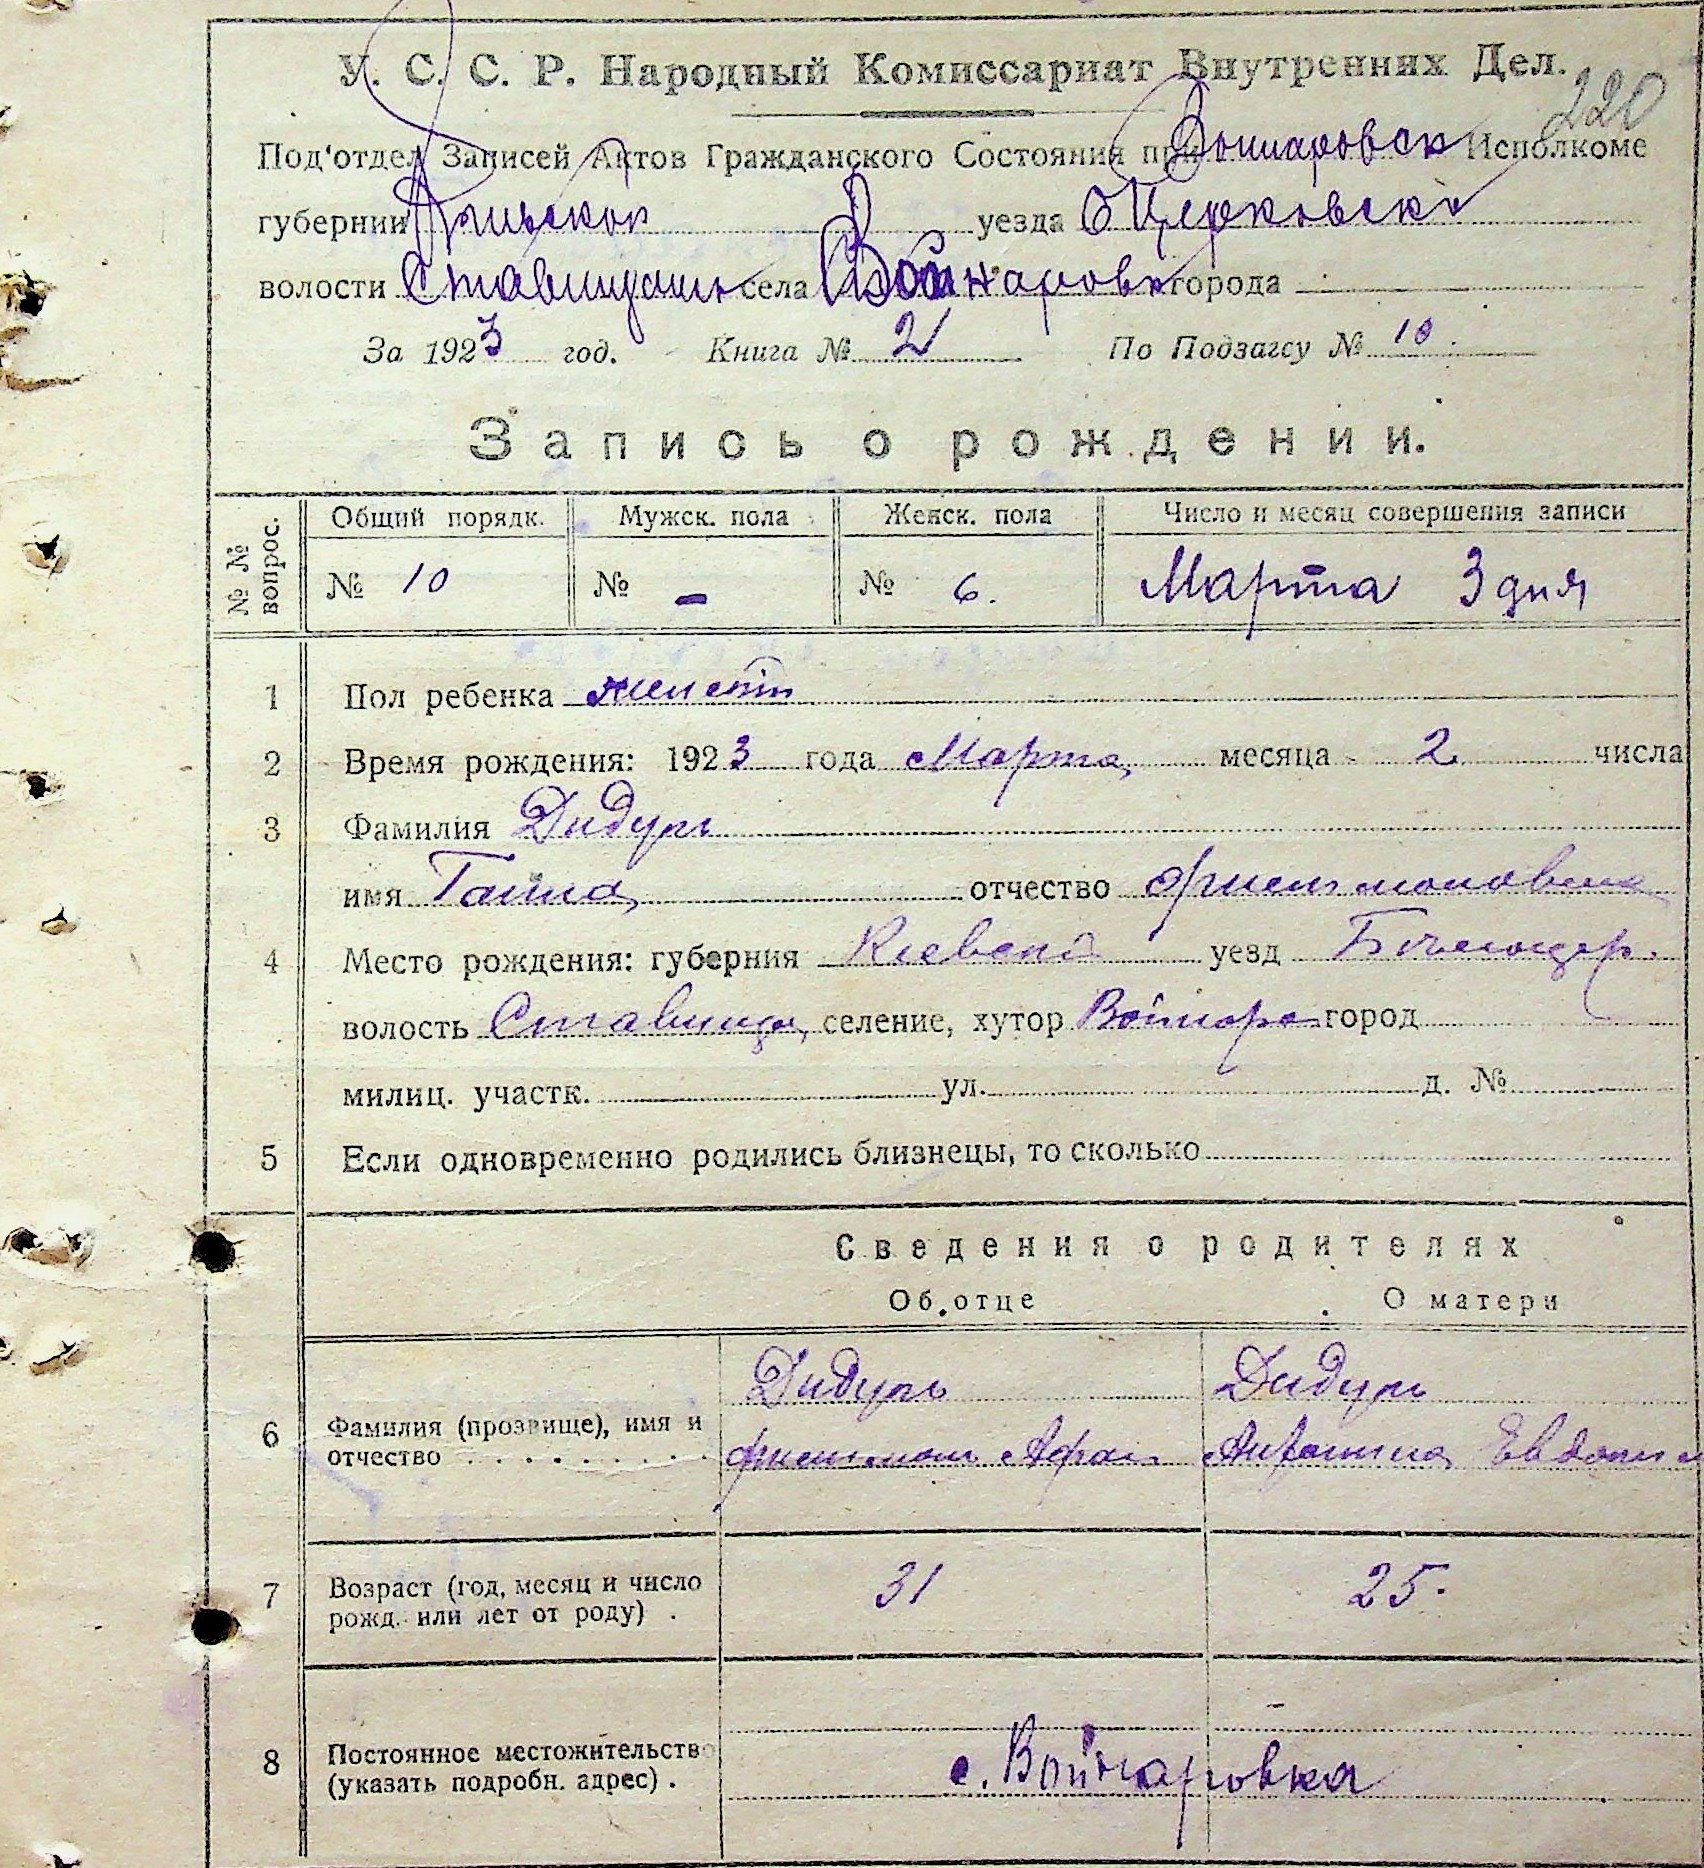 У. С. С. Р. Народный Комиссариат Внутренних Дел.
220
Под'отдел Записей Актов Гражданского Состояния при Исполкоме
губернии уезда Б Церковск
волости села Войнаровк города
За 1923 год. Книга № 2 По Подзагсу № 10.
Запись о рождении.
№ № вопрос. Общий порядк. Мужск. пола Женск. пола Число и месяц совершения записи
№ 10 № - № 6. Марта 3 дня
1 Пол ребенка
2 Время рождения: 1923 года Марта месяца 2 числа
3 Фамилия Дидурь
имя Ганна отчество
4 Место рождения: губерния Киевска уезд Белоцер.
волость Ставища селение, хутор Войнаро город
милиц. участк. ул. д. №
5 Если одновременно родились близнецы, то сколько
Сведения о родителях
Об отце О матери
Дидурь Дидурь
6 Фамилия (прозвище), имя и
отчество Афан Евдоким
7 Возраст (год, месяц и число
рожд. или лет от роду) . 31 25.
8 Постоянное местожительство
(указать подробн. адрес) . с. Войнаровка